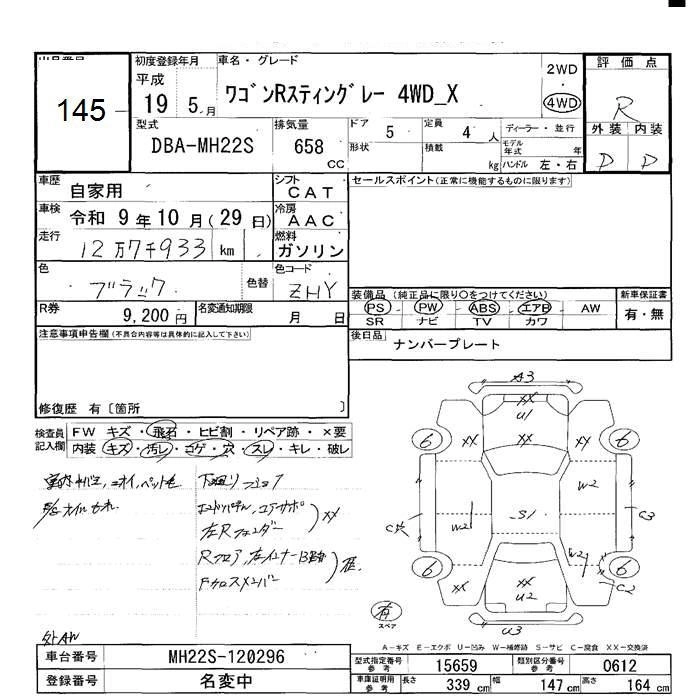 初度登録年月
車名・グレード
評価点
平成
19 5 月
ワゴンRスティングレー 4WD_X
2WD
4WD
R
145
型式
排気量
ドア
5
定員
4 人
ディーラー・並行
外装 内装
DBA-MH22S
658
CC
形状
積載
kg
モデル年式
年
ハンドル 左・右
D D
車歴
自家用
シフト
CAT
セールスポイント(正常に機能するものに限ります)
車検
令和 9 年 10 月 (29 日)
冷房
AAC
走行
12万7千933 km
燃料
ガソリン
色
ブラック
色替
色コード
ZHY
装備品 (純正品に限り○をつけてください)
新車保証書
R券
9,200 円
名変通知期限
月 日
PS PW ABS エアB AW
SR ナビ TV カワ
有・無
注意事項申告欄(不具合内容等は具体的に記入して下さい)
後日品
ナンバープレート
修復歴 有〔箇所 〕
検査員記入欄
FW キズ・飛石・ヒビ割・リペア跡・×要
内装 キズ・汚レ・コゲ・穴・スレ・キレ・破レ
A3
XX
U1
6 XX XX XX 6
W2
S1
W2
C3
W2
6 6
XX XX U2
C2
U3
有
スペア
A-キズ E-エクボ U-凹み W-補修跡 S-サビ C-腐食 XX-交換済
外AW
車台番号
MH22S-120296
登録番号
名変中
型式指定番号
参考
15659
類別区分番号
参考
0612
車庫証明用
参考
長さ 339 cm
幅 147 cm
高さ 164 cm